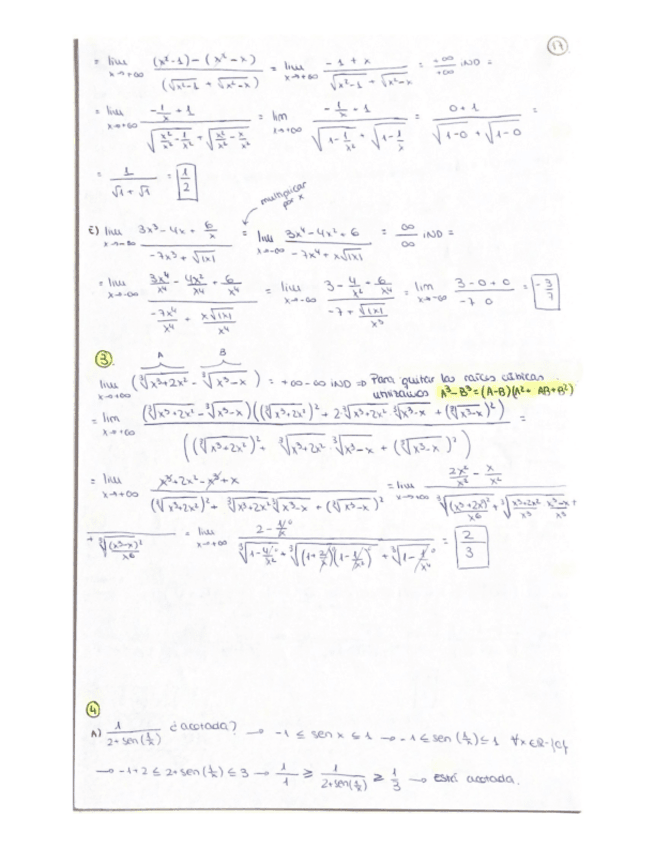 17
= lim x→+∞ (x²-1)-(x²-x) / (√x²-1 + √x²-x) = lim x→+∞ -1+x / √x²-1 + √x²-x = +∞/+∞ IND =
= lim x→+∞ -1/x + 1 / √x²/x² - 1/x² + √x²/x² - x/x² = lim x→+∞ -1/x + 1 / √1-1/x² + √1-1/x = 0+1 / √1-0 + √1-0 =
= 1 / √1 + √1 = 1/2
multiplicar por x
E) lim x→-∞ 3x³-4x+6/x / -7x³+√|x| = lim x→-∞ 3x⁴-4x²+6 / -7x⁴+x√|x| = ∞/∞ IND =
= lim x→-∞ 3x⁴/x⁴ - 4x²/x⁴ + 6/x⁴ / -7x⁴/x⁴ + x√|x|/x⁴ = lim x→-∞ 3-4/x²+6/x⁴ / -7+√|x|/x³ = lim x→-∞ 3-0+0 / -7 0 = -3/7
3
A B
lim x→+∞ (∛x³+2x² - ∛x³-x) = +∞-∞ IND ⇒ Para quitar las raíces cúbicas
utilizamos A³-B³=(A-B)(A²+AB+B²)
= lim x→+∞ (∛x³+2x² - ∛x³-x)((∛x³+2x²)² + 2·∛x³+2x² ∛x³-x + (∛x³-x)²) / ((∛x³+2x²)² + ∛x³+2x² · ∛x³-x + (∛x³-x)²) =
= lim x→+∞ x³+2x²-x³+x / (∛x³+2x²)² + ∛x³+2x² ∛x³-x + (∛x³-x)² = lim x→+∞ 2x²/x² - x/x² / ∛(x³+2x²)²/x⁶ + ∛x³+2x²/x³ x³-x/x³ +
+ ∛(x³-x)²/x⁶ = lim x→+∞ 2-1/x / ∛1-4/x² + ∛(1+2/x)(1-1/x²) + ∛1-1/x⁴ = 2/3
4
A) 1/2+sen(1/x) ¿acotada? → -1 ≤ sen x ≤ 1 → -1 ≤ sen(1/x) ≤ 1 ∀x∈R-{0}
→ -1+2 ≤ 2+sen(1/x) ≤ 3 → 1/1 ≥ 1/2+sen(1/x) ≥ 1/3 → está acotada.